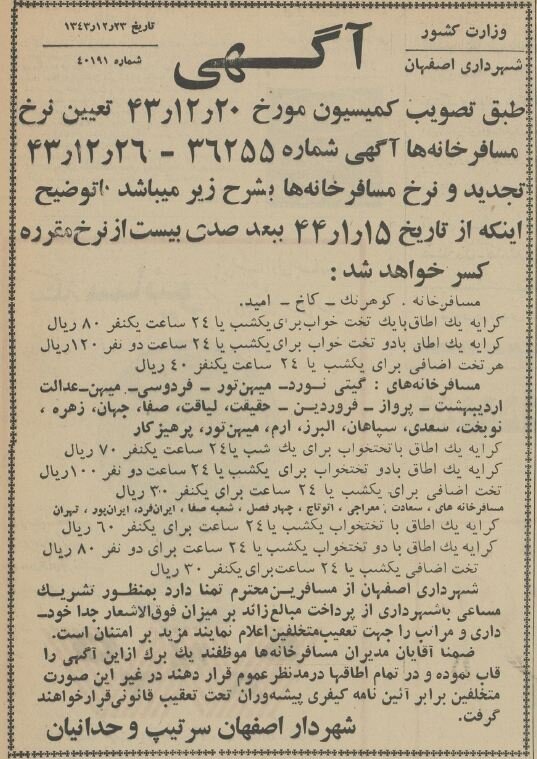 وزارت کشور
شهرداری اصفهان
آگهی
تاریخ ۲۳ر۱۲ر۱۳۴۳
شماره ۴۰۱۹۱
طبق تصویب کمیسیون مورخ ۲۰ر۱۲ر۴۳ تعیین نرخ
مسافرخانه‌ها آگهی شماره ۳۶۲۵۵ – ۲۶ر۱۲ر۴۳
تجدید و نرخ مسافرخانه‌ها بشرح زیر میباشد باتوضیح
اینکه از تاریخ ۱۵ر۱ر۴۴ ببعد صدی بیست از نرخ مقرره
کسر خواهد شد :
مسافرخانه . کوهرنك – کاخ – امید.
کرایه یك اطاق بایك تخت خواب برای یکشب یا ۲۴ ساعت یکنفر ۸۰ ریال
کرایه یك اطاق بادو تخت خواب برای یکشب یا ۲۴ ساعت دو نفر ۱۲۰ریال
هر تخت اضافی برای یکشب یا ۲۴ ساعت یکنفر ۴۰ ریال
مسافرخانه‌های : گیتی نورد – میهن‌تور – فردوسی – میهن – عدالت
اردیبهشت – پرواز – فروردین – حقیقت، لیاقت، صفا، جهان، زهره ،
نوبخت، سعدی، سپاهان، البرز، ارم، میهن‌تور، پرهیزکار
کرایه یك اطاق باتختخواب برای یك شب یا۲۴ ساعت یکنفر ۷۰ ریال
کرایه یك اطاق بادو تختخواب برای یکشب یا ۲۴ ساعت دو نفر ۱۰۰ریال
تخت اضافی برای یکشب یا ۲۴ ساعت برای یکنفر ۳۰ ریال
مسافرخانه های ، سعادت ، معراجی ، اتوتاج ، چهارفصل ، شعبه صفا ، ایران‌فرد، ایران‌پور ، تهران
کرایه یك اطاق با تختخواب یکشب یا۲۴ ساعت برای یکنفر ۶۰ ریال
کرایه یك اطاق با دو تختخواب یکشب یا ۲۴ ساعت برای دو نفر ۸۰ ریال
تخت اضافی یکشب یا ۲۴ ساعت برای یکنفر ۳۰ ریال
شهرداری اصفهان از مسافرین محترم تمنا دارد بمنظور تشریك
مساعی باشهرداری از پرداخت مبالغ زائد بر میزان فوق‌الاشعار جدا خود–
داری و مراتب را جهت تعقیب متخلفین اعلام نمایند مزید بر امتنان است.
ضمنا آقایان مدیران مسافرخانه‌ها موظفند یك برك ازاین آگهی را
قاب نموده و در تمام اطاقها درمدنظر عموم قرار دهند در غیر این صورت
متخلفین برابر آئین نامه کیفری پیشه‌وران تحت تعقیب قانونی قرارخواهند
گرفت.
شهردار اصفهان سرتیپ وحدانیان